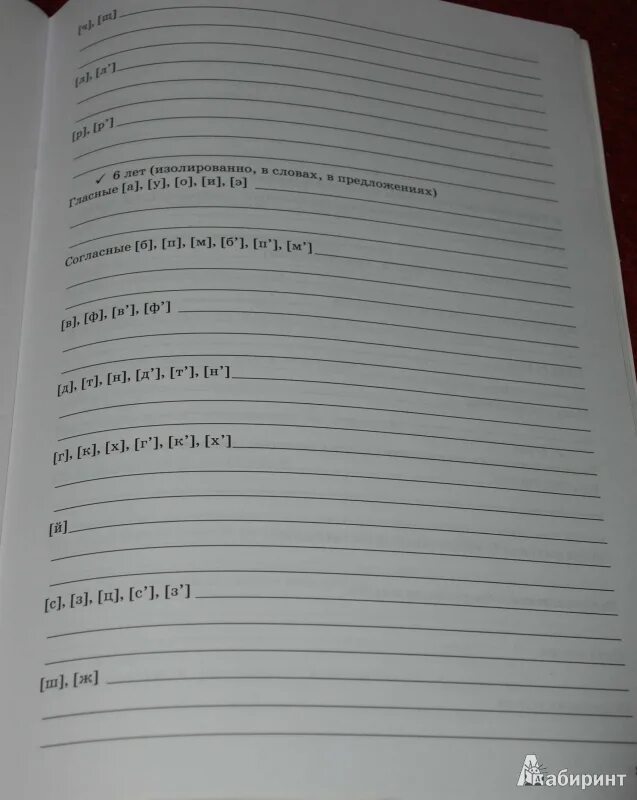 [ч], [щ]
[л], [л’]
[р], [р’]
✓ 6 лет (изолированно, в словах, в предложениях)
Гласные [а], [у], [о], [и], [э]
Согласные [б], [п], [м], [б’], [п’], [м’]
[в], [ф], [в’], [ф’]
[д], [т], [н], [д’], [т’], [н’]
[г], [к], [х], [г’], [к’], [х’]
[й]
[с], [з], [ц], [с’], [з’]
[ш], [ж]
Лабиринт